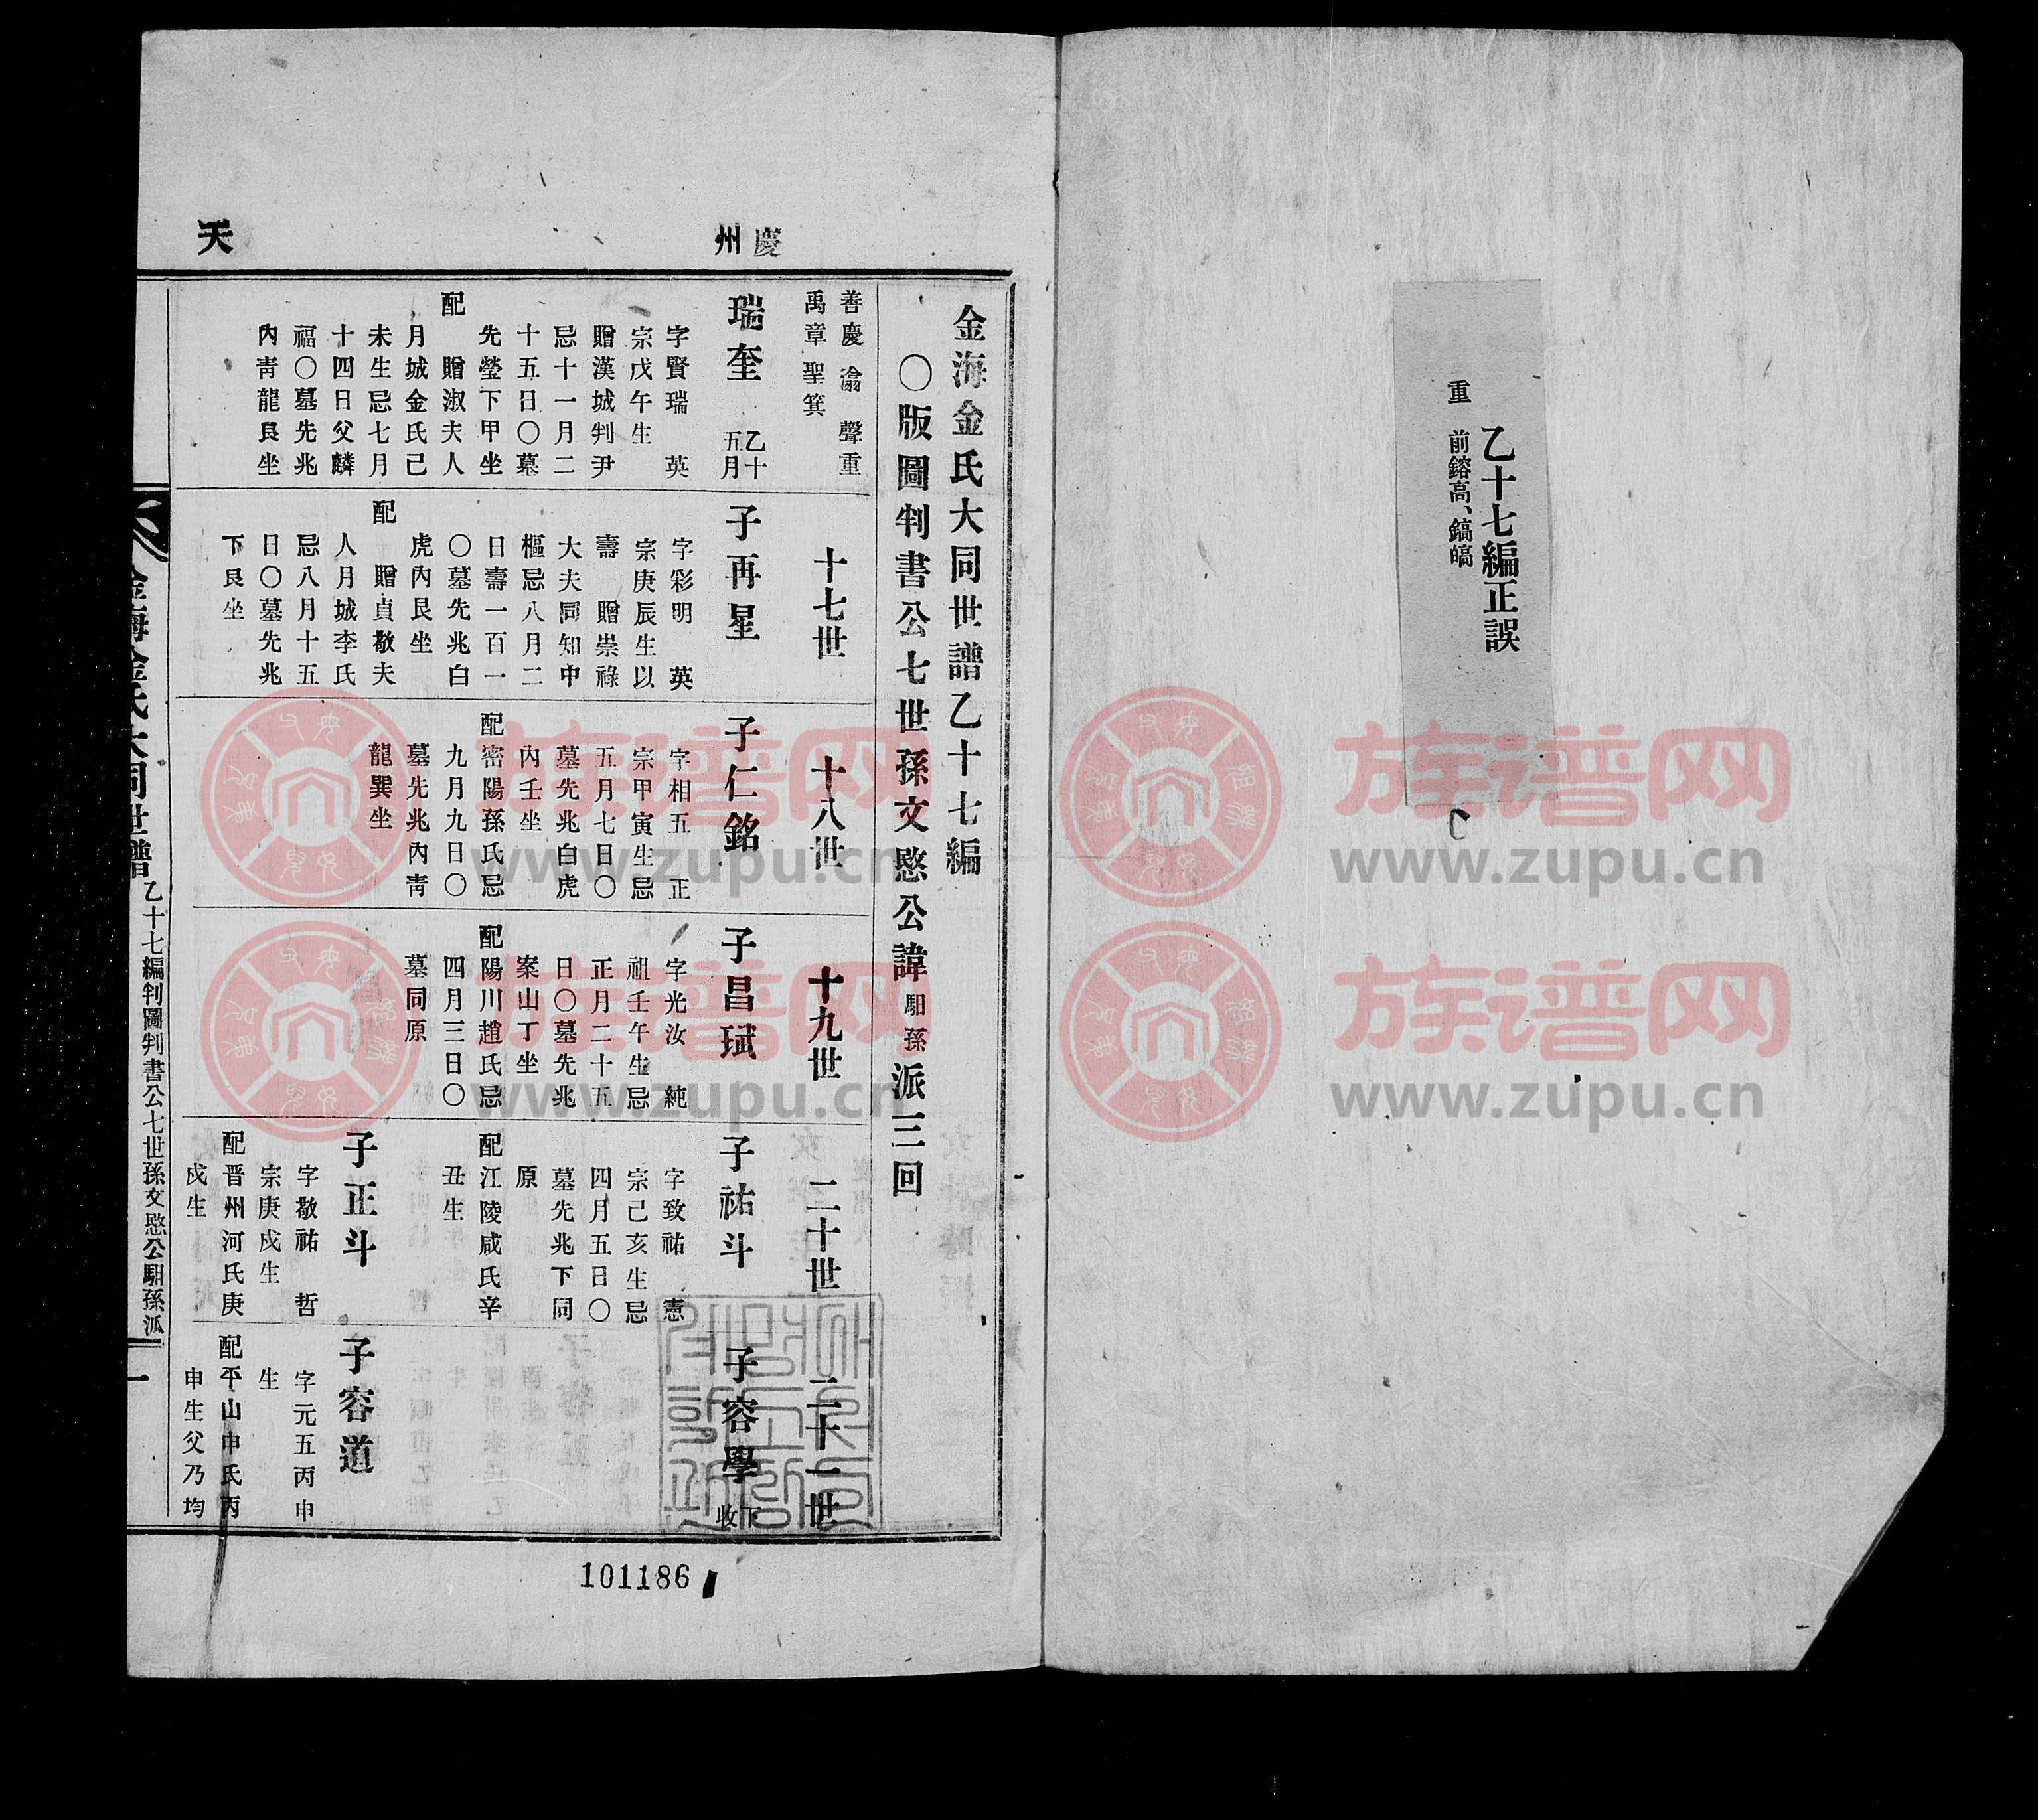 乙十七編正誤
重　前鎔高、鎬皜
慶州
天
金海金氏大同世譜乙十七編
〇版圖判書公七世孫文愍公諱馹孫派三回
十七世
十八世
十九世
二十世
二十一世
善慶 瀹 聲重
禹章 聖箕
瑞奎 乙十五月
字賢瑞 英
宗戊午生
贈漢城判尹
忌十一月二
十五日〇墓
先塋下甲坐
配 贈淑夫人
月城金氏己
未生忌七月
十四日父麟
福〇墓先兆
內靑龍艮坐
子再星
字彩明 英
宗庚辰生以
壽 贈崇祿
大夫同知中
樞忌八月二
日壽一百一
〇墓先兆白
虎內艮坐
配 贈貞敬夫
人月城李氏
忌八月十五
日〇墓先兆
下艮坐
子仁銘
字相五 正
宗甲寅生忌
五月七日〇
墓先兆白虎
內壬坐
配密陽孫氏忌
九月九日〇
墓先兆內靑
龍巽坐
子昌珷
字光汝 純
祖壬午生忌
正月二十五
日〇墓先兆
案山丁坐
配陽川趙氏忌
四月三日〇
墓同原
子祐斗
字致祐 憲
宗己亥生忌
四月五日〇
墓先兆下同
原
配江陵咸氏辛
丑生
子正斗
字敬祐 哲
宗庚戌生
配晋州河氏庚
戌生
子容學 下收
子容道
字元五丙申
生
配平山申氏丙
申生父乃均
金海金氏大同世譜 乙十七編判圖判書公七世孫文愍公馹孫派 一
101186
族谱网
www.zupu.cn
族谱网
www.zupu.cn
族谱网
www.zupu.cn
族谱网
www.zupu.cn